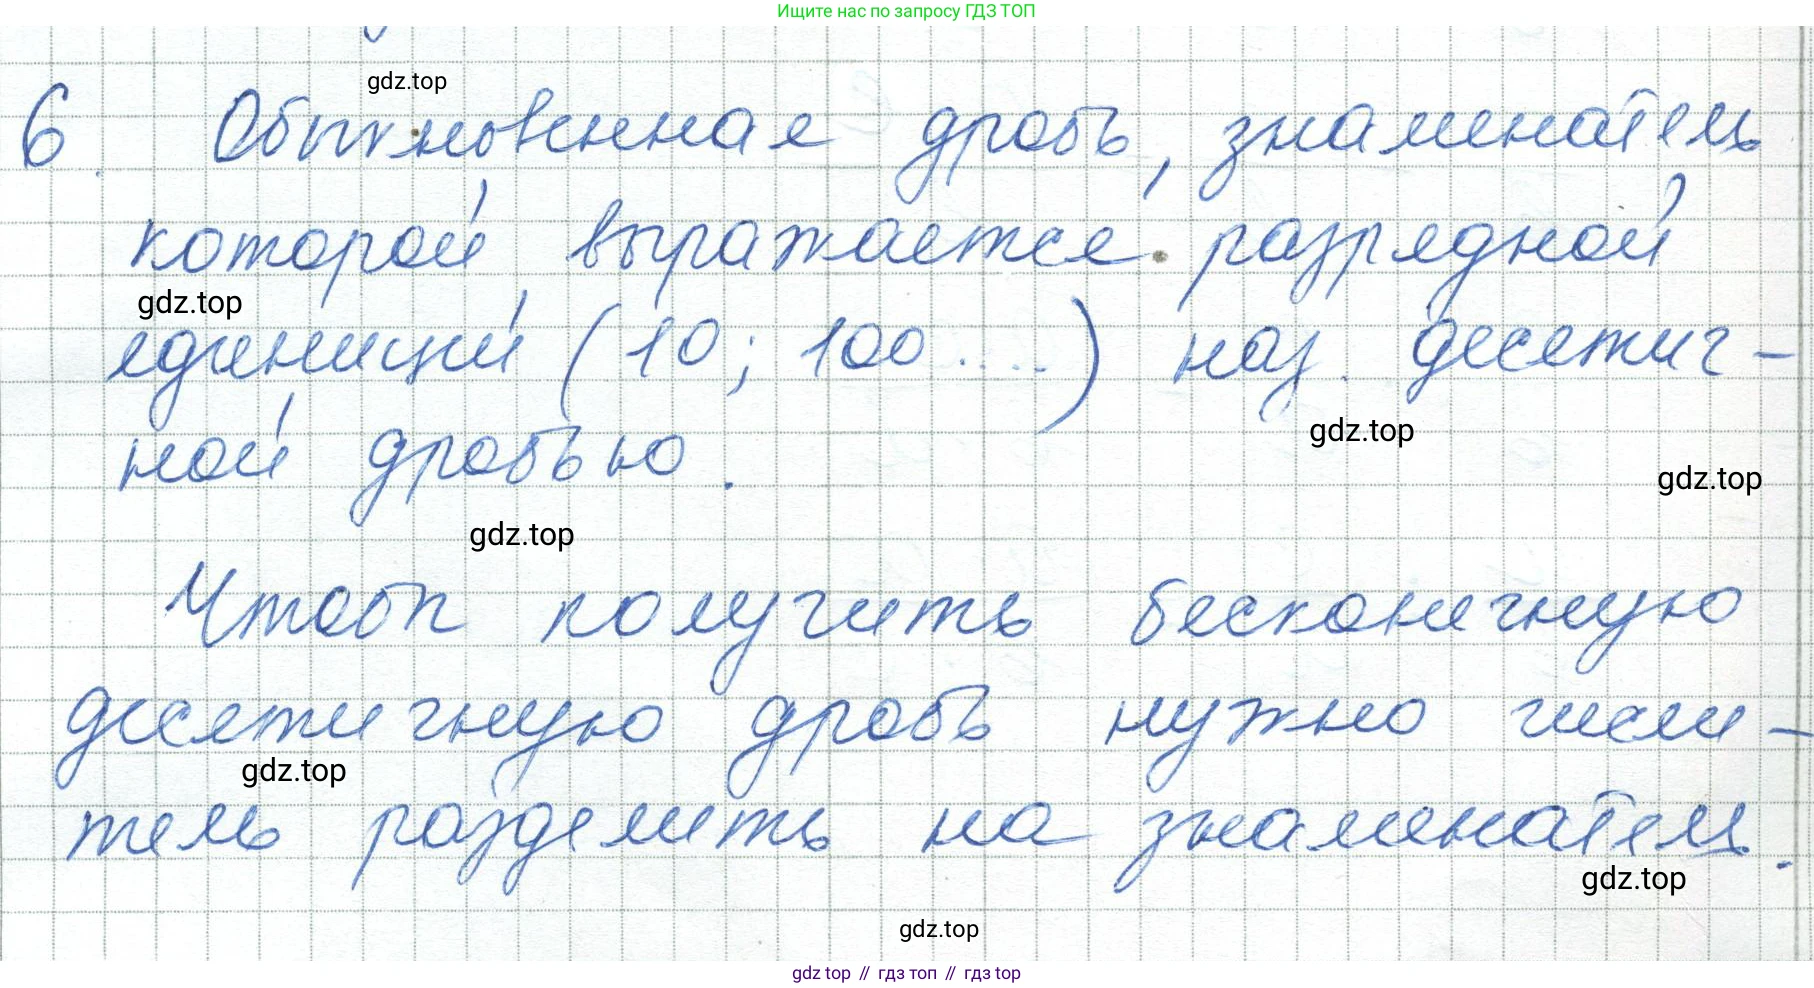 Ищите нас по запросу ГДЗ ТОП
gdz.top
6. Обыкновенная дробь, знаменатель
которой выражается разрядной
gdz.top
единицей (10; 100 ....) наз. десятич-
gdz.top
ной дробью.
gdz.top
gdz.top
Чтобы получить бесконечную
десятичную дробь нужно числи-
gdz.top
тель разделить на знаменатель.
gdz.top
gdz.top
gdz top // гдз топ // гдз top